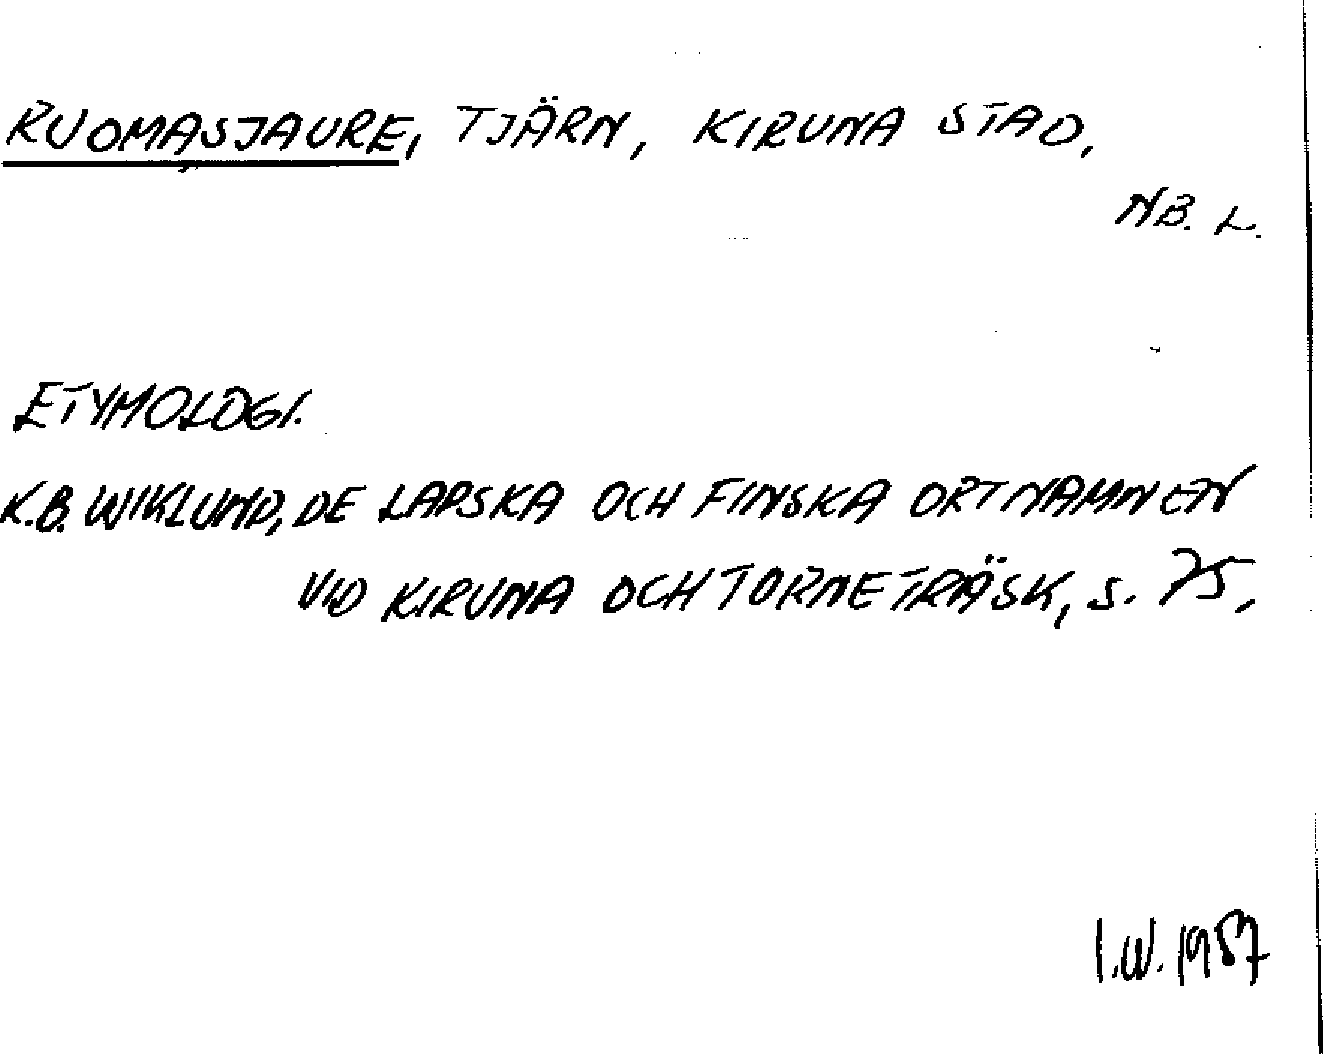 RUOMASJAURE, TJÄRN, KIRUNA STAD,
NB. L.
ETYMOLOGI.
K.B. WIKLUND, DE LAPSKA OCH FINSKA ORTNAMNEN
VID KIRUNA OCH TORNETRÄSK, S. 75,
I.W. 1957